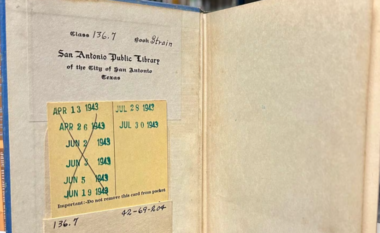 Class 136.7 Book Strain
San Antonio Public Library
of the City of San Antonio
Texas
APR 13 1943 JUL 29 1943
APR 26 1943 JUL 30 1943
JUN 2 1943
JUN 3 1943
JUN 5 1943
JUN 19 1943
Important:—Do not remove this card from pocket
136.7 42-69-204